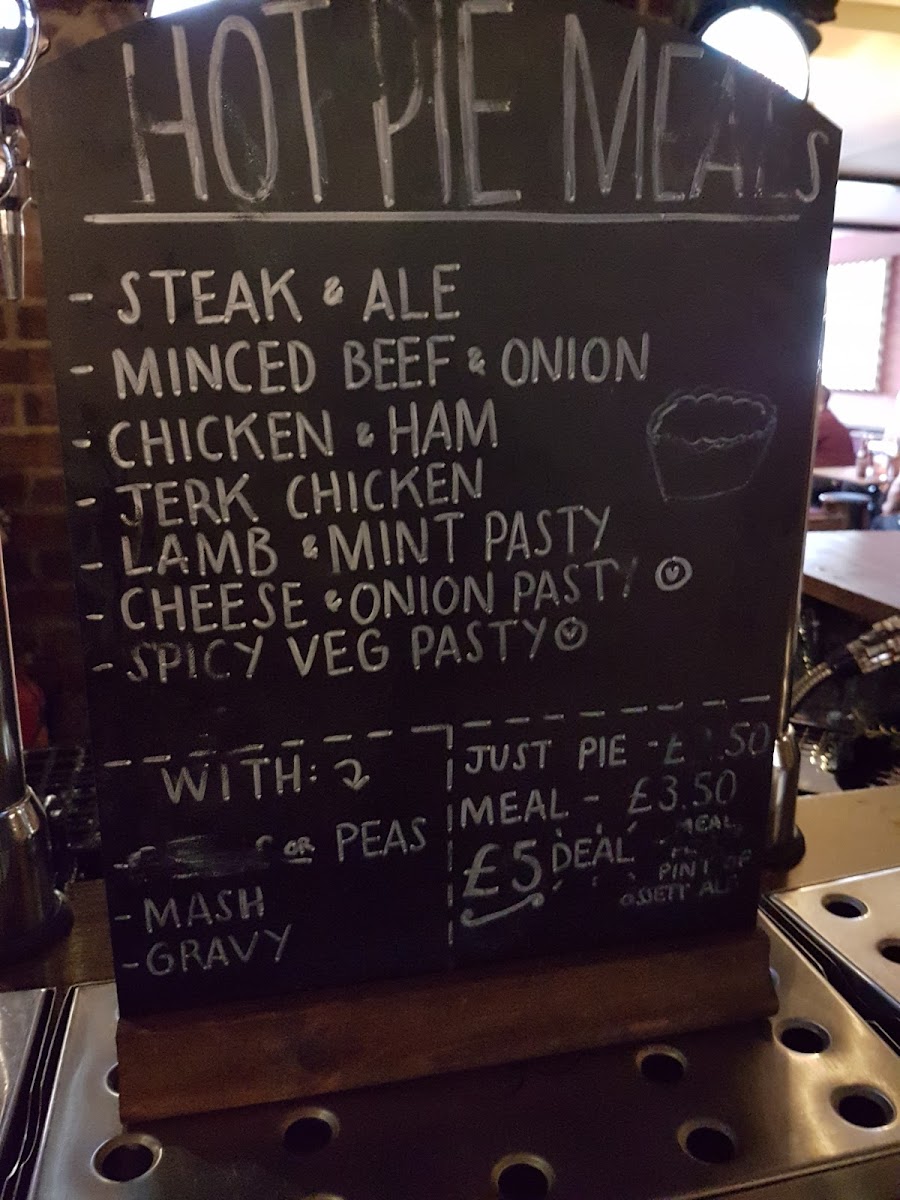 HOT PIE MEALS
- STEAK & ALE
- MINCED BEEF & ONION
- CHICKEN & HAM
- JERK CHICKEN
- LAMB & MINT PASTY
- CHEESE & ONION PASTY
- SPICY VEG PASTY
WITH:
- or PEAS
- MASH
- GRAVY
JUST PIE -
MEAL - £3.50
£5 DEAL
MEAL
PINT OF
OSSETT ALE